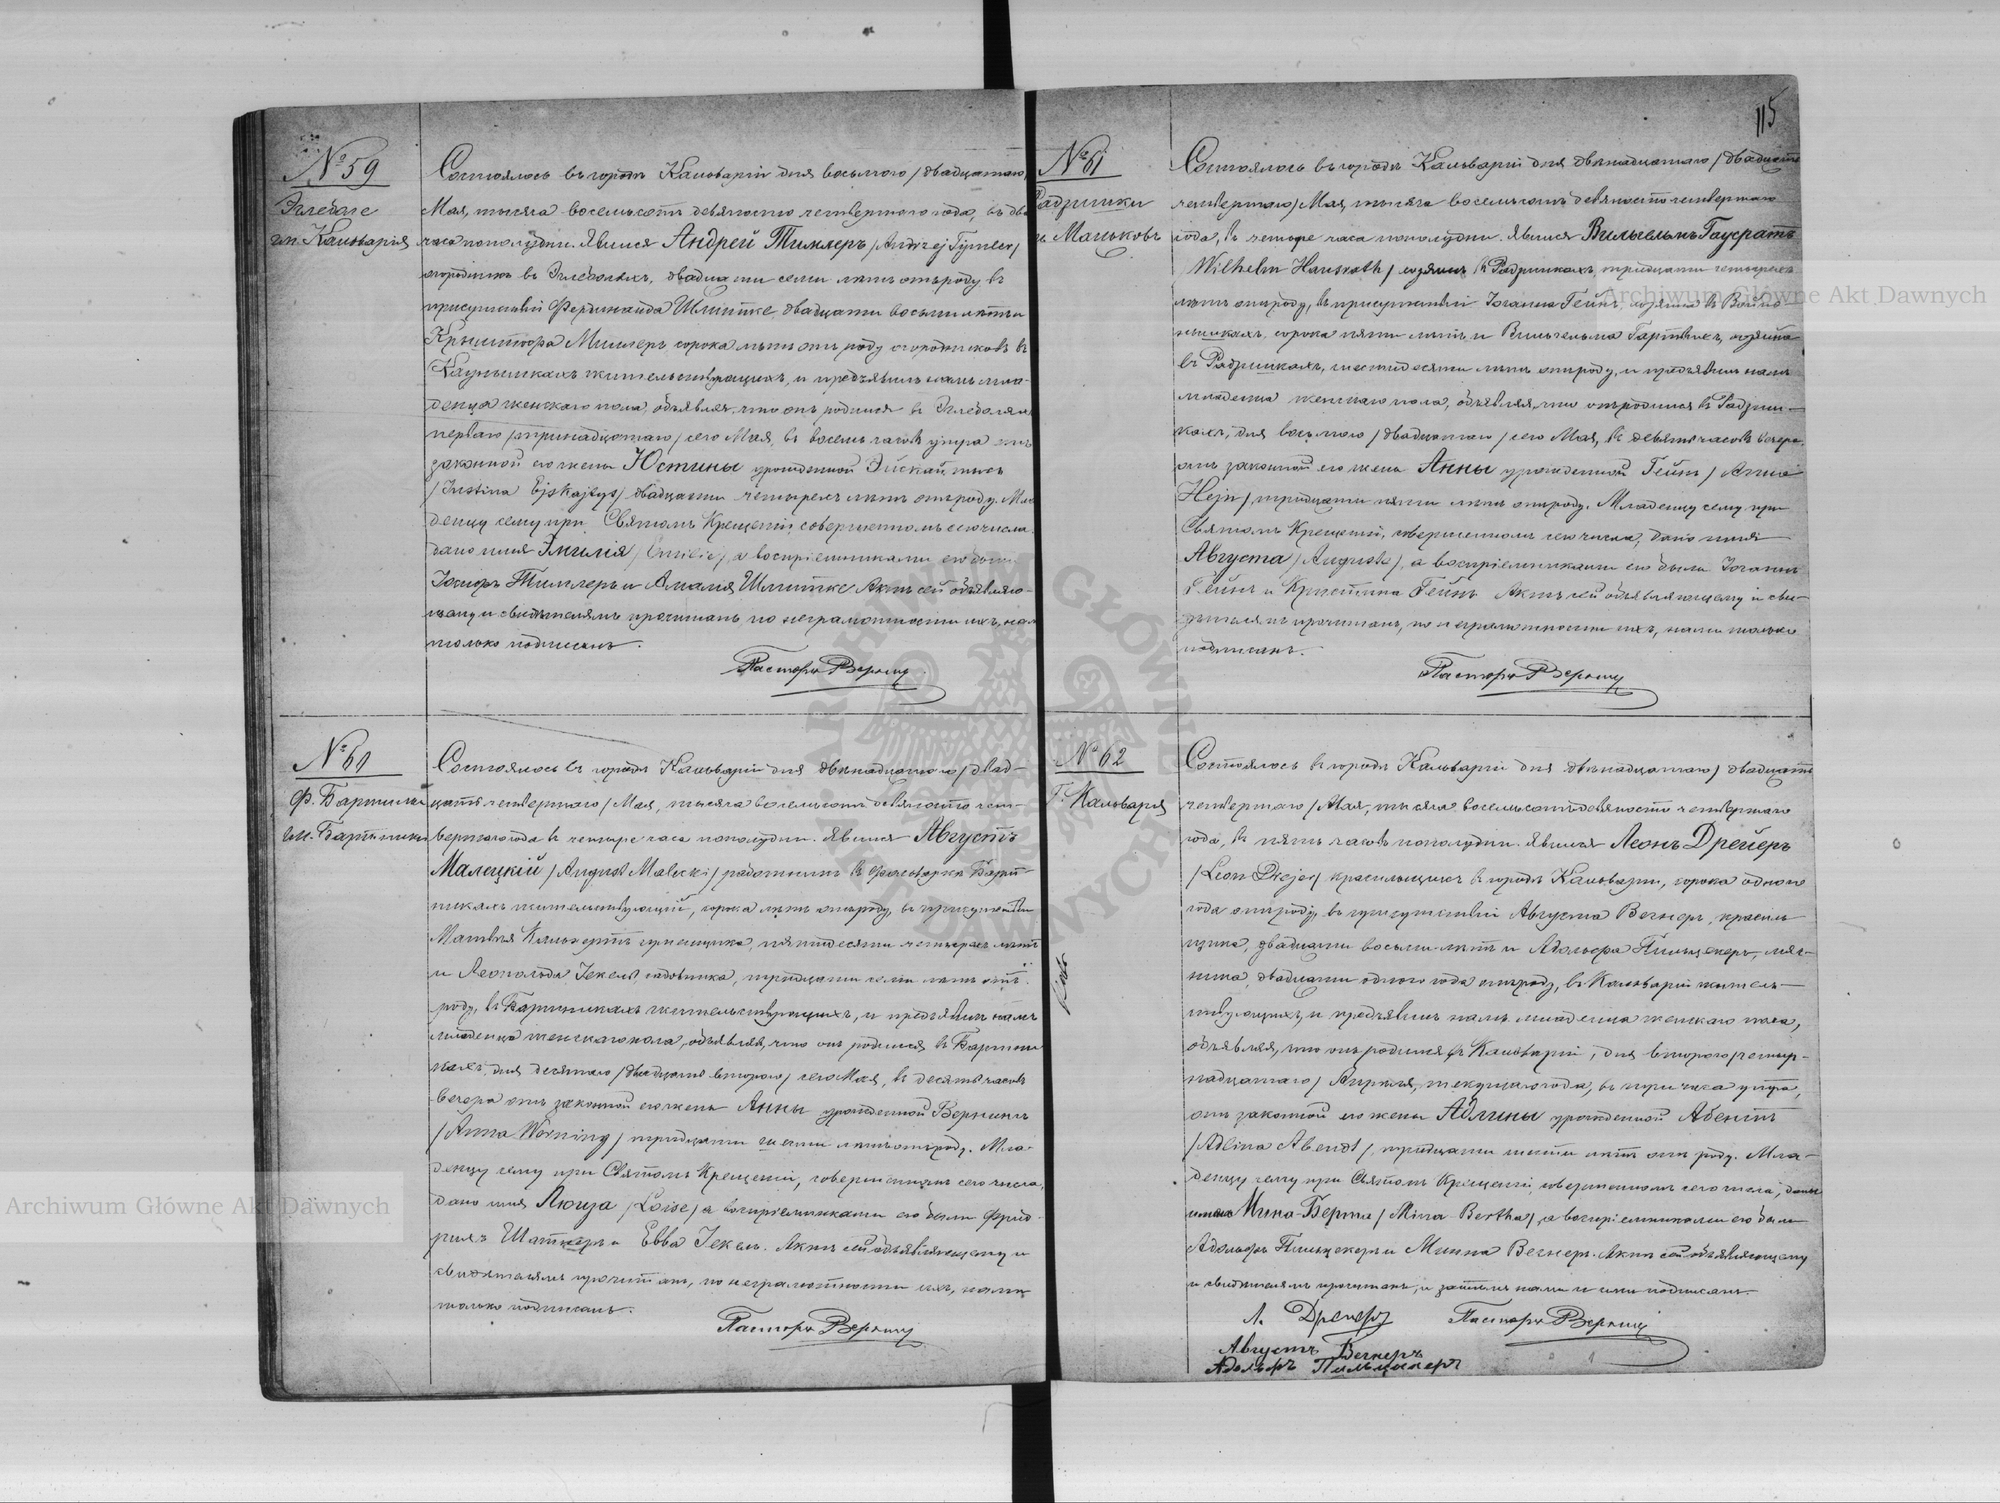 № 59
Эглебале
гм. Кальварія
Состоялось въ городѣ Кальваріи дня восьмого /двадцатаго/
Мая, тысяча восемьсотъ девяносто четвертаго года, въ два
часа пополудни. Явился Андрей Тимлеръ /Andrzej Tymler/
огородникъ въ Эглеболяхъ, двадцати семи лѣтъ отъ роду въ
присутствіи Фердинанда Шлитке, двадцати восьми лѣтъ и
Крыштофа Миллеръ, сорока лѣтъ отъ роду огородниковъ въ
жительствующихъ, и предъявилъ намъ мла-
денца женскаго пола, объявляя, что онъ родился въ Эглеболяхъ
перваго /тринадцатаго/ сего Мая, въ восемь часовъ утра отъ
законной его жены Юстины урожденной Эйскайтысъ
/Justina Ejskajtys/ двадцати четырехъ лѣтъ отъ роду. Мла-
денцу сему при Святомъ Крещеніи, совершенномъ сего числа
дано имя Эмилія /Emilie/, а воспріемниками его были
Іосифъ Тимлеръ и Амалія Шлитке. Актъ сей объявляю-
щему и свидѣтелямъ прочитанъ, по неграмотности ихъ, нами
только подписанъ.
Пасторъ Верницъ
№ 60
Ф. Бартники
гм. Бартники
Состоялось въ городѣ Кальваріи дня двѣнадцатаго /двад-
цать четвертаго/ Мая, тысяча восемьсотъ девяносто чет-
вертаго года въ четыре часа пополудни. Явился Августъ
Малецкій /August Malecki/ работникъ въ фольваркѣ Барт-
никахъ жительствующій, сорока лѣтъ отъ роду, въ присутствіи
Матвѣя, пятидесяти четырехъ лѣтъ
и Леопольда Іекель, садовника, тридцати семи лѣтъ отъ
роду, въ Бартникахъ жительствующихъ, и предъявилъ намъ
младенца женскаго пола, объявляя, что онъ родился въ Бартни-
кахъ, дня десятаго /двадцать втораго/ сего Мая, въ десять часовъ
вечера отъ законной его жены Анны урожденной Вернингъ
/Anna Werning/ тридцати лѣтъ отъ роду. Мла-
денцу сему при Святомъ Крещеніи, совершенномъ сего числа,
дано имя Люиза /Loise/ а воспріемниками его были Фрид-
рихъ и Евва Іекель. Актъ сей объявляющему и
свидѣтелямъ прочитанъ, по неграмотности ихъ, нами
только подписанъ.
Пасторъ Верницъ
115
№ 61
Радзишки
Маньковъ
Состоялось въ городѣ Кальваріи дня двѣнадцатаго /двадцать
четвертаго/ Мая, тысяча восемьсотъ девяносто четвертаго
года, въ четыре часа пополудни. Явился Вильгельмъ Гаусратъ
/Wilhelm Hausrath/ хозяинъ въ Радзишкахъ, тридцати четырехъ
лѣтъ отъ роду, въ присутствіи Іоганна Гейнъ, хозяина въ Войпо-
нишкахъ, сорока пяти лѣтъ и Вильгельма Гартвигъ, хозяина
въ Радзишкахъ, шестидесяти лѣтъ отъ роду, и предъявилъ намъ
младенца женскаго пола, объявляя, что онъ родился въ Радзиш-
кахъ, дня восьмого /двадцатаго/ сего Мая, въ девять часовъ вечера,
отъ законной его жены Анны урожденной Гейнъ /Anna
Hejn/ тридцати пяти лѣтъ отъ роду. Младенцу сему при
Святомъ Крещеніи, совершенномъ сего числа, дано имя
Августа /Augusta/, а воспріемниками его были Іоганнъ
Гейнъ и Кристина Гейнъ. Актъ сей объявляющему и сви-
дѣтелямъ прочитанъ, по неграмотности ихъ, нами только
подписанъ.
Пасторъ Верницъ
№ 62
Г. Кальварія
Состоялось въ городѣ Кальваріи дня двѣнадцатаго /двадцать
четвертаго/ Мая, тысяча восемьсотъ девяносто четвертаго
года, въ пять часовъ пополудни. Явился Леонъ Дрейеръ
/Leon Drejer/ красильщикъ въ городѣ Кальваріи, сорока одного
года отъ роду, въ присутствіи Августа Вегнеръ, красиль-
щика, двадцати восьми лѣтъ и Адольфа Пильцекеръ, мяс-
ника, двадцати одного года отъ роду, въ Кальваріи житель-
ствующихъ, и предъявилъ намъ младенца женскаго пола,
объявляя, что онъ родился въ Кальваріи, дня втораго /четыр-
надцатаго/ Апрѣля, текущаго года, въ три часа утра,
отъ законной его жены Адлины урожденной Абентъ
/Adlina Abendt/, тридцати шести лѣтъ отъ роду. Мла-
денцу сему при Святомъ Крещеніи, совершенномъ сего числа, даны
имена Мина-Берта /Mina-Bertha/, а воспріемниками его были
Адольфъ Пильцекеръ и Минна Вегнеръ. Актъ сей объявляющему
и свидѣтелямъ прочитанъ, и затѣмъ нами и ими подписанъ.
Л. Дрейеръ
Пасторъ Верницъ
Августъ Вегнеръ
Адольфъ Пильцекеръ
Archiwum Główne Akt Dawnych
Archiwum Główne Akt Dawnych